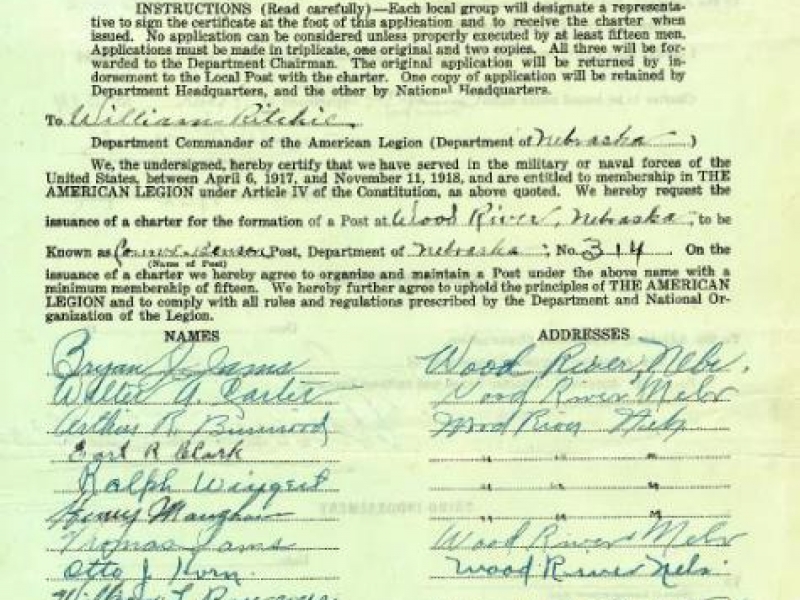 INSTRUCTIONS (Read carefully)—Each local group will designate a representa-
tive to sign the certificate at the foot of this application and to receive the charter when
issued. No application can be considered unless properly executed by at least fifteen men.
Applications must be made in triplicate, one original and two copies. All three will be for-
warded to the Department Chairman. The original application will be returned by in-
dorsement to the Local Post with the charter. One copy of application will be retained by
Department Headquarters, and the other by National Headquarters.
To William Ritchie,
Department Commander of the American Legion (Department of Nebraska )
We, the undersigned, hereby certify that we have served in the military or naval forces of the
United States, between April 6, 1917, and November 11, 1918, and are entitled to membership in THE
AMERICAN LEGION under Article IV of the Constitution, as above quoted. We hereby request the
issuance of a charter for the formation of a Post at Wood River, Nebraska, to be
Known as Benson Post, Department of Nebraska ; No. 314. On the
(Name of Post)
issuance of a charter we hereby agree to organize and maintain a Post under the above name with a
minimum membership of fifteen. We hereby further agree to uphold the principles of THE AMERICAN
LEGION and to comply with all rules and regulations prescribed by the Department and National Or-
ganization of the Legion.
NAMES ADDRESSES
Bryan J. Jams Wood River, Nebr.
Walter A. Carter Wood River Nebr
Arthur R. Wood River Neb
Earl R Clark " " "
Ralph Wingert " " "
Henry Maugham " " "
Thomas Jams Wood River Nebr
Otto J. Korn. Wood River Nebr.
William L